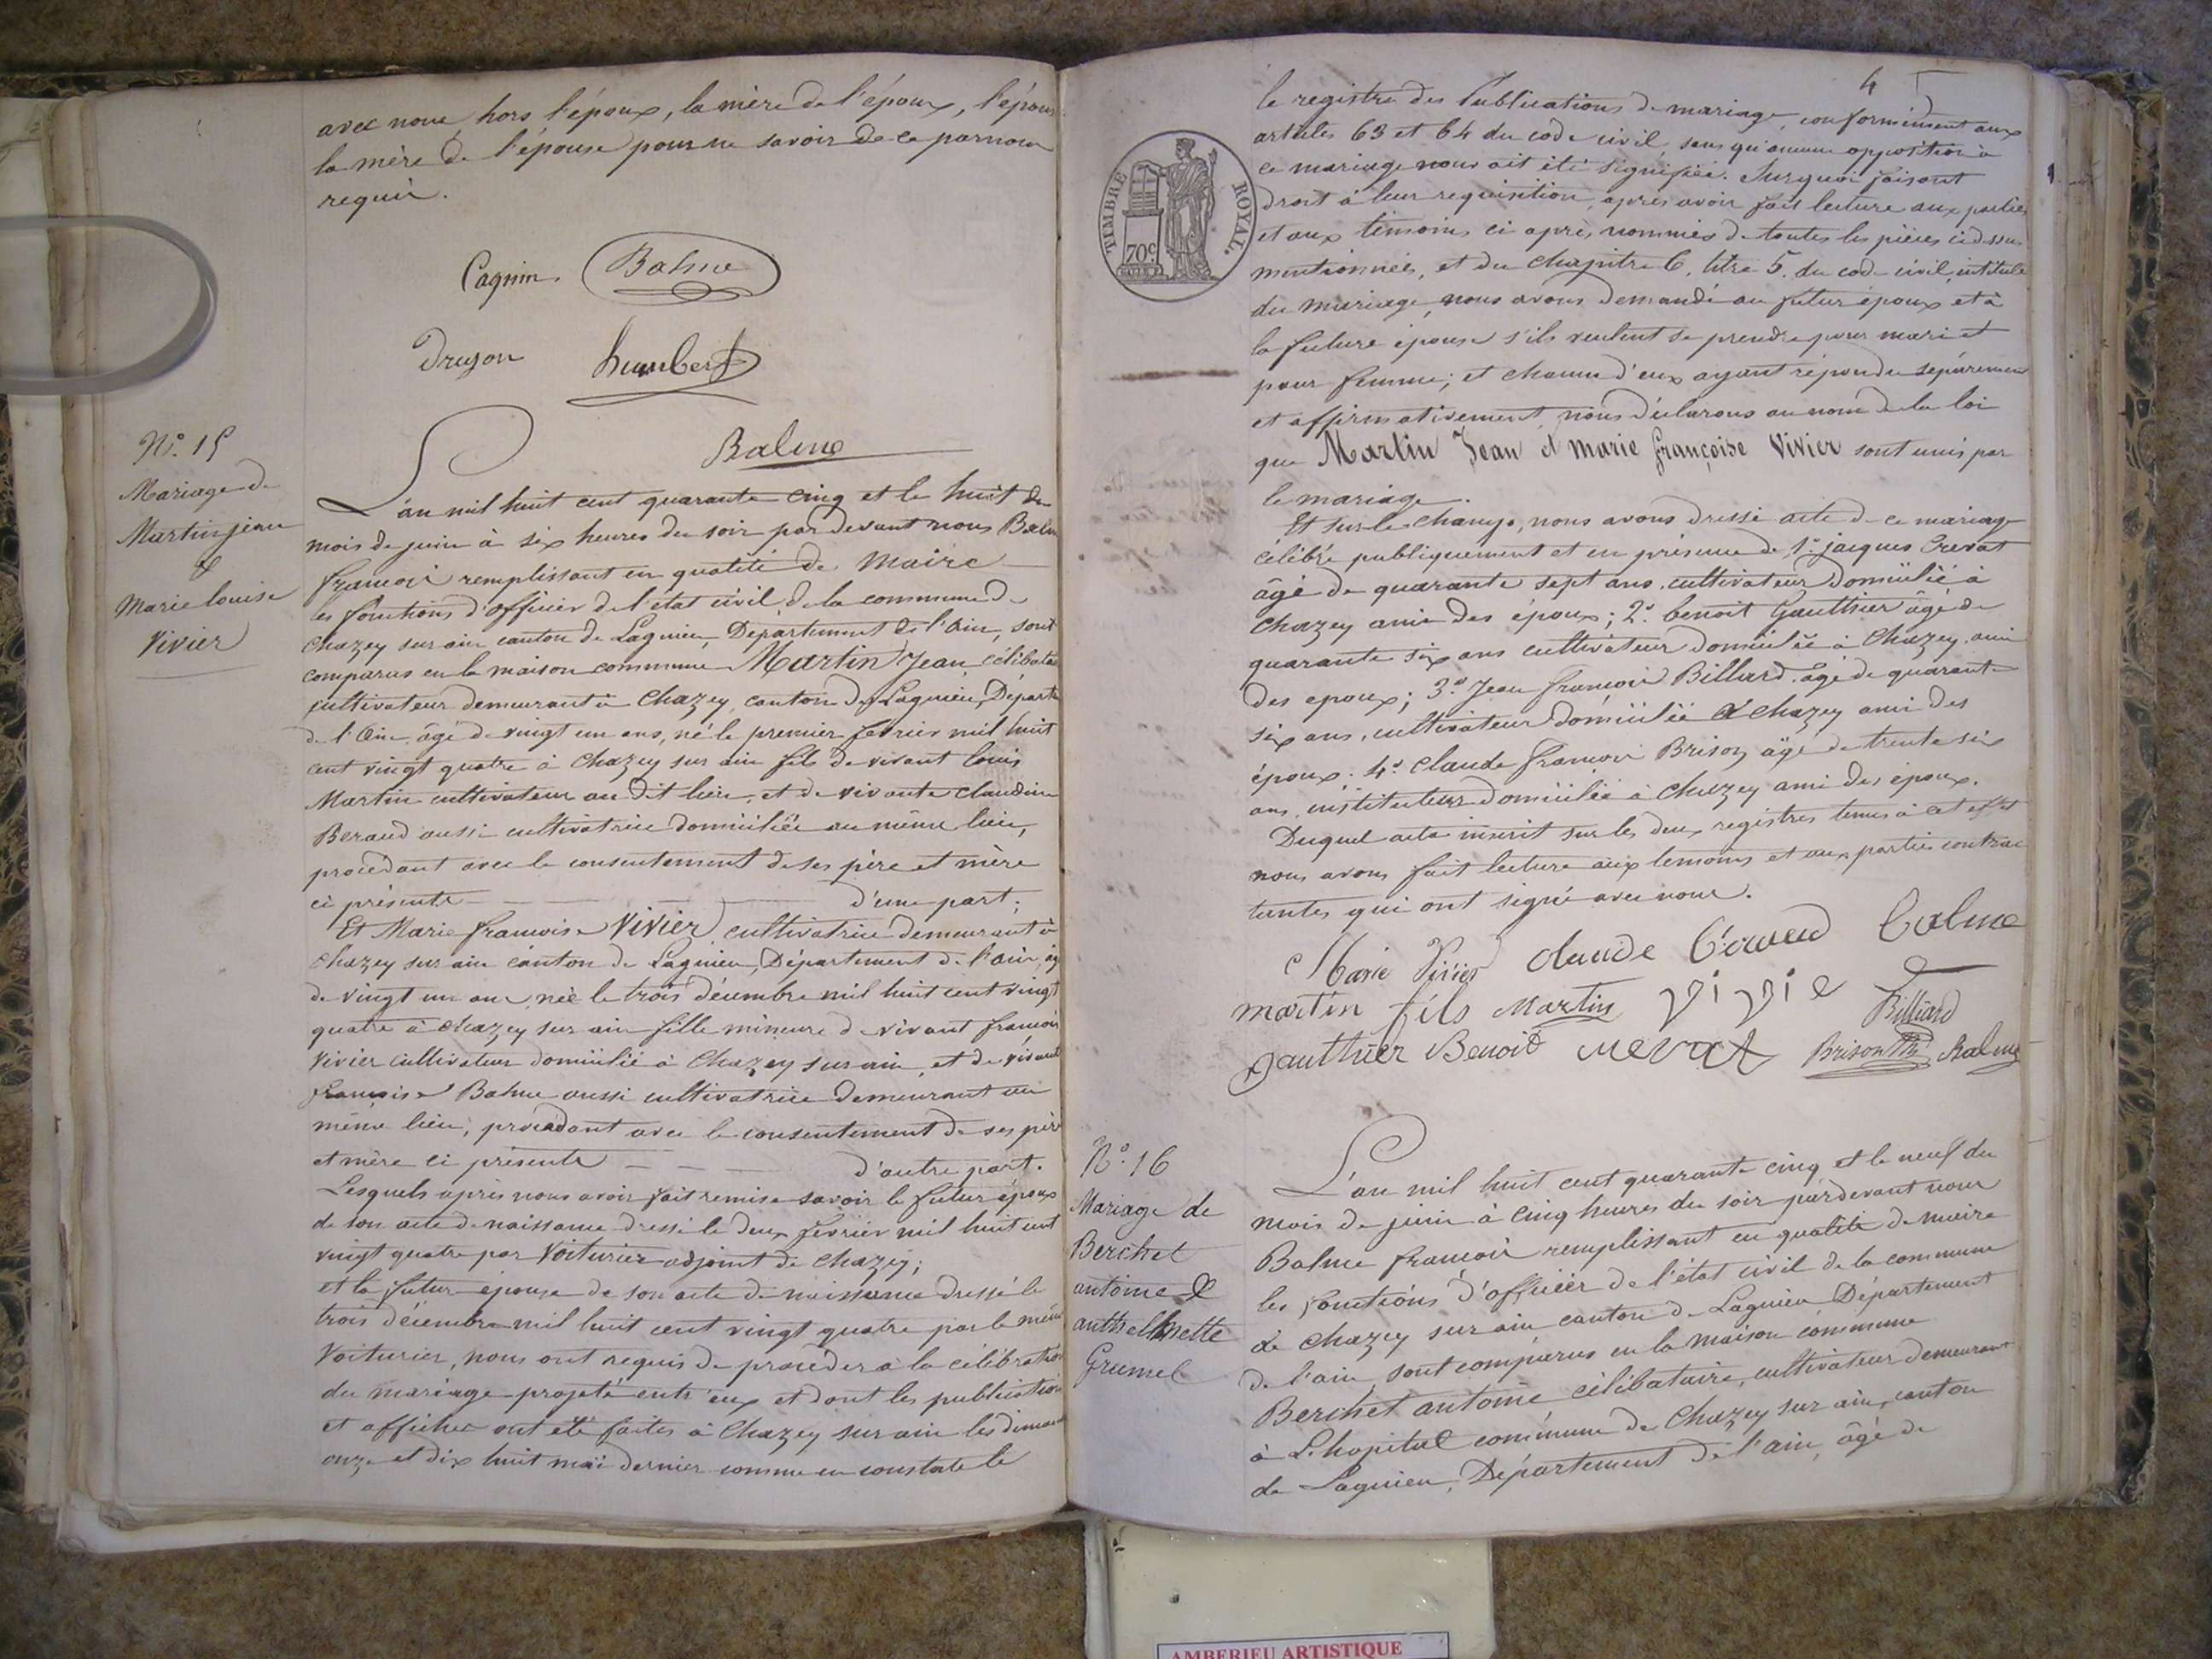 avec nous, hors l'époux, la mère de l'époux, l'épouse
la mère de l'épouse pour ne savoir de ce par nous
requis.
Cagnin Balme
Drugon humbert
Balme
N°. 15
Mariage de
Martin jean
&
Marie louise
Vivier
L'an mil huit cent quarante cinq et le huit du
mois de juin à six heures du soir par devant nous Balme
françois remplissant en qualité de Maire
les fonctions d'officier de l'état civil de la commune de
Chazey sur ain canton de Lagnieu, Département de l'Ain, sont
comparus en la maison commune Martin Jean, célibataire
cultivateur demeurant à Chazey, canton de Lagnieu, Départ
de l'Ain âgé de vingt un ans, né le premier février mil huit
cent vingt quatre à Chazey sur ain fils de vivant louis
Martin cultivateur au dit lieu, et de vivante claudine
Beraud aussi cultivatrice domiciliée au même lieu,
procédant avec le consentement de ses père et mère
ci présents d'une part;
Et Marie francoise Vivier cultivatrice demeurant à
Chazey sur ain canton de Lagnieu, Département de l'ain, âg
de vingt un an née le trois décembre mil huit cent vingt
quatre à Chazey sur ain fille mineure de vivant francois
Vivier cultivateur domicilié à Chazey sur ain, et de vivant
francoise Balme aussi cultivatrice demeurant au
même lieu, procédant avec le consentement de ses père
et mère ci présents d'autre part.
Lesquels après nous avoir fait remise savoir le futur époux
de son acte de naissance dressé le deux février mil huit cent
vingt quatre par Voiturier adjoint de Chazey;
et la futur épouse de son acte de naissance dressé le
trois décembre mil huit cent vingt quatre par le même
Voiturier, nous ont requis de procéder à la célébration
du mariage projeté entr'eux et dont les publications
et affiches ont été faites à Chazey sur ain les diman
onze et dix huit mai dernier comme en constate le
4
TIMBRE ROYAL.
70c
le registre des Publications de mariage, conformément aux
articles 63 et 64 du code civil, sans qu'aucune opposition à
ce mariage nous ait été signifiée. Surquoi faisant
droit à leur requisition, après avoir fait lecture aux parties
et aux témoins ci après nommés de toutes les pièces cidessus
mentionnées, et du Chapitre 6, titre 5. du code civil, intitulé
du mariage, nous avons demandé au futur époux et à
la future épouse s'ils veulent se prendre pour mari et
pour femme; et chacun d'eux ayant répondu séparément
et affirmativement, nous déclarons au nom de la loi
que Martin Jean et marie françoise Vivier sont unis par
le mariage.
Et sur le champ, nous avons dressé acte de ce mariage
célébré publiquement et en présence de, 1° jacques Crevat
âgé de quarante sept ans, cultivateur domicilié à
Chazey ami des époux; 2°. benoit Gauthier âgé de
quarante six ans cultivateur domicilié à Chazey ami
des epoux; 3° Jean francois Billiard âgé de quarante
six ans, cultivateur domicilié à Chazey ami des
époux. 4° Claude francois Brison âgé de trente six
ans, instituteur domicilié à Chazey ami des époux.
Duquel acte inscrit sur les deux registres tenus à cet effet
nous avons fait lecture aux temoins et aux parties contrac
tantes qui ont signé avec nous.
Marie Vivier Claude Beraud balme
martin fils Martin ViVie Billiard
gauthier Benoit crevat Brison Balme
N°. 16
Mariage de
Berchet
antoine &
anthelmette
Grumel
L'an mil huit cent quarante cinq et le neuf du
mois de juin à cinq heures du soir pardevant nous
Balme francois remplissant en qualité de maire
les fonctions d'officier de l'état civil de la commune
de Chazey sur ain canton de Lagnieu Département
de l'ain, sont comparus en la maison commune
Berchet antoine célibataire, cultivateur demeurant
à L.hopital commune de Chazey sur ain, canton
de Lagnieu, Département de l'ain, âgé de
AMBERIEU ARTISTIQUE